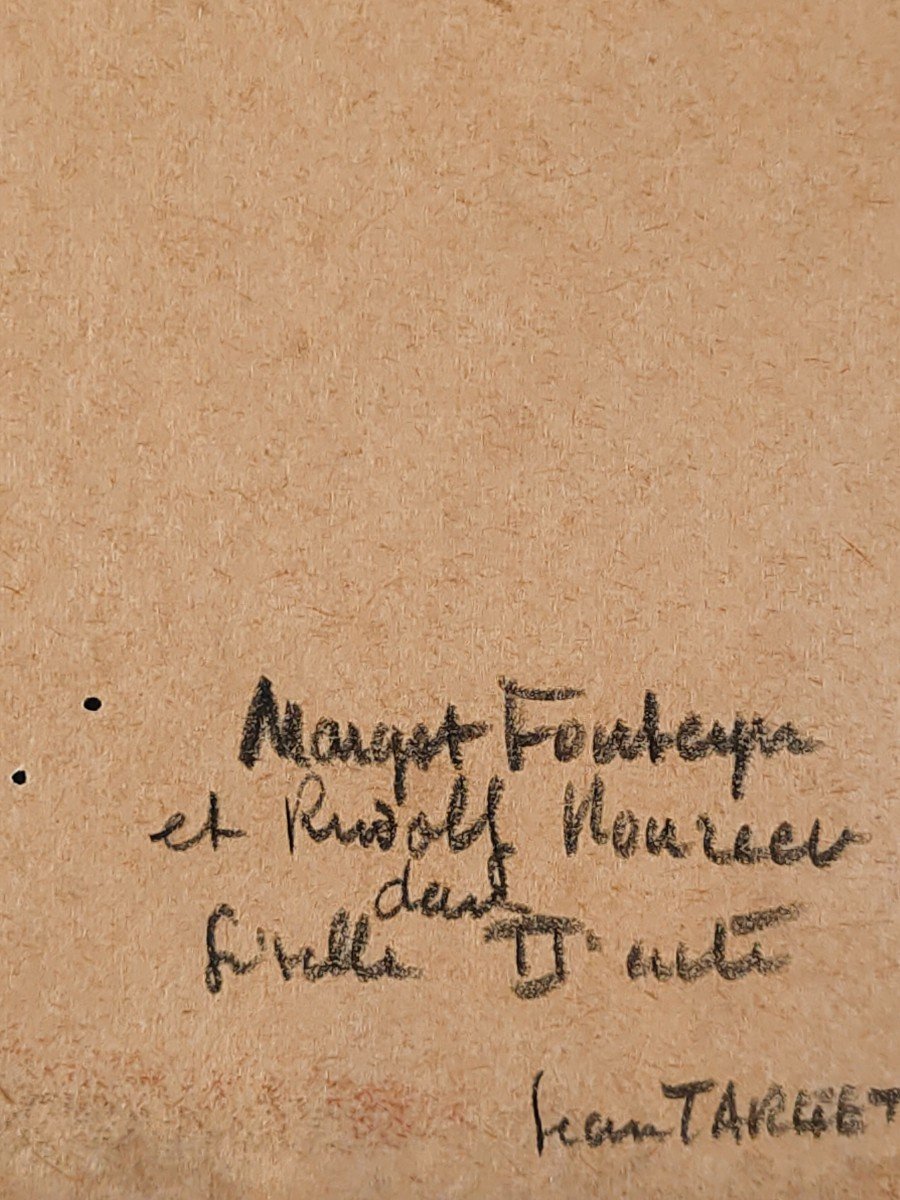 Margot Fonteyn
et Rudolf Noureev
dans
Giselle II' acte
Jean TARGET